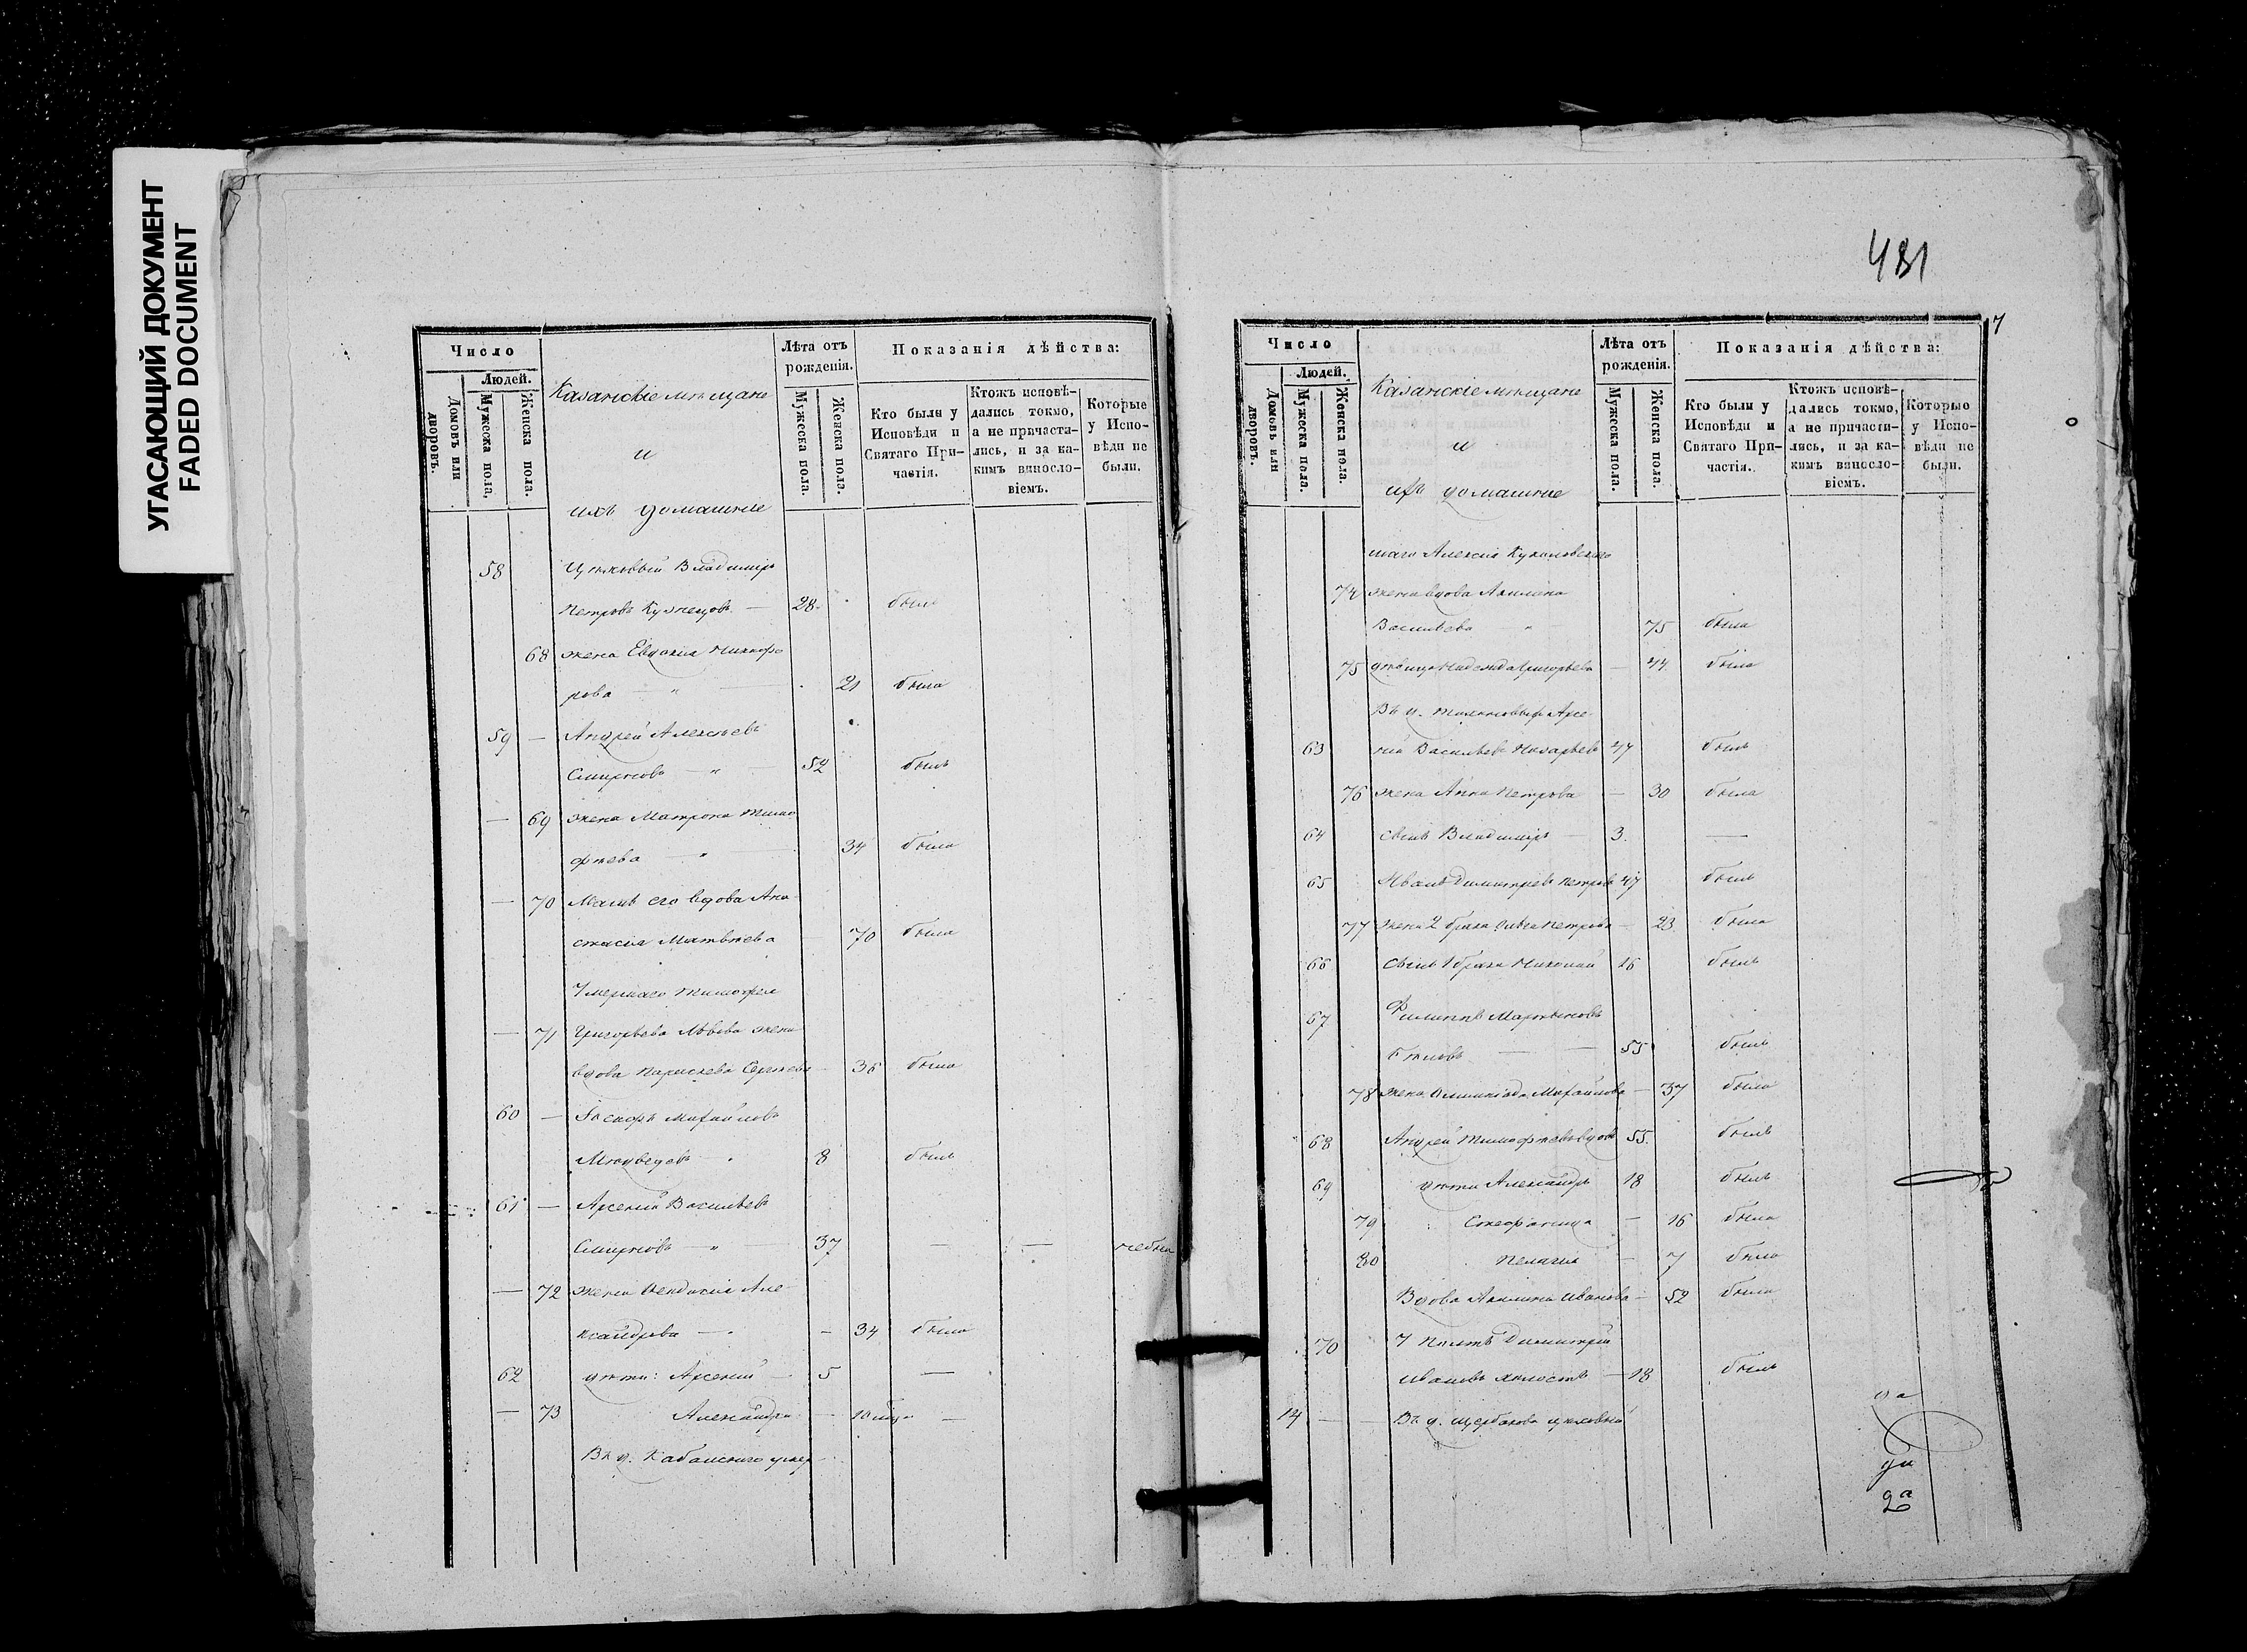 УГАСАЮЩИЙ ДОКУМЕНТ
FADED DOCUMENT
Число
Людей.
Домовъ или дворовъ.
Мужеска пола.
Женска пола.
Казанскіе мѣщане
и
ихъ домашніе
Лѣта отъ рожденія.
Мужеска пола.
Женска пола.
Показанія дѣйства:
Кто были у Исповѣди и Святаго Причастія.
Ктожъ исповѣ-
дались токмо,
а не причасти-
лись, и за ка-
кимъ винносло-
віемъ.
Которые
у Испо-
вѣди не
были.
58 Цѣховый Владиміръ
Петровъ Кузнецовъ — 28 былъ
68 жена Евдокія Никифо
рова " — 21 была
59 — Андрей Алексѣевъ
Смирновъ — " — 52 былъ
— 69 жена Матрона Тимо
фѣева — " — 34 была
— 70 Мать его вдова Ана
стасія Матвѣева 70 была
Умершаго Тимофея
— 71 Григорьева Львова жена
вдова Параскева Сергѣева 36 была
60 — Михайловъ
Медведевъ 8 былъ
61 — Арсеній Васильевъ
Смирновъ — " — 37 — — небылъ
— 72 жена Але
ксандрова — — 34 была
62 дѣти: Арсеній — 5 —
— 73 Александра — 10 мѣся —
Въ д. Кабанскаго умер
431
7
Число
Людей.
Домовъ или дворовъ.
Мужеска пола.
Женска пола.
Казанскіе мѣщане
и
ихъ домашніе
Лѣта отъ рожденія.
Мужеска пола.
Женска пола.
Показанія дѣйства:
Кто были у
Исповѣди и
Святаго При-
частія.
Ктожъ исповѣ-
дались токмо,
а не причасти-
лись, и за ка-
кимъ винносло-
віемъ.
Которые
у Испо-
вѣди не
были.
шаго Алексія
74 жена вдова Акилина
Васильева " 75 была
75 дѣвица Надежда Григорьева — 44 была
Въ д. Арсе
63 ній Васильевъ Назарьевъ 47 былъ
76 жена Анна Петрова — 30 была
64 сынъ Владиміръ — 3 —
65 Иванъ Димитріевъ Петровъ 47 былъ
77 жена 2 брака Ольга Петрова — 23 была
66 сынъ 1 брака Николай 16 былъ
67 Филиппъ Мартыновъ
Бѣловъ — — 55 былъ
78 жена Олимпіада Михайлова — 37 была
68 Андрей Тимофѣевъ вдовъ 55 былъ
69 дѣти Александръ 18 былъ
79 Стефанида — 16 была
80 Пелагія — 7 была
Вдова Акилина Иванова — 52 была
70 У Димитрій
Ивановъ холостъ — 18 былъ
14 — — Въ д. Щербакова цѣховый